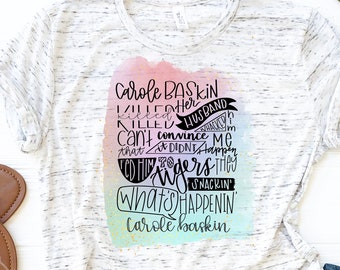 Carole Baskin
KILLED Her
KILLED HUSBAND
WHACKED him
Can't convince me
that it DIDN'T Happen
FED HIM TO tigers THEY
SNACKIN'
What's HAPPENIN'
carole baskin